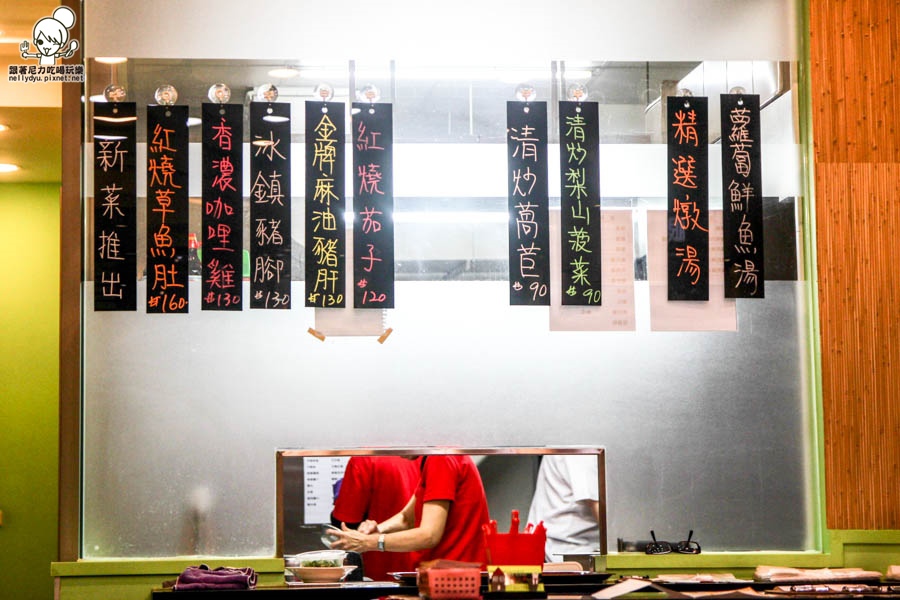 跟著尼力吃喝玩樂
nellydyu.pixnet.net
新菜推出
紅燒草魚肚 #160
香濃咖哩雞 #130
冰鎮豬腳 #130
金牌麻油豬肝 #130
紅燒茄子 #120
清炒萵苣 #90
清炒梨山菠菜 #90
精選燉湯
蘿蔔鮮魚湯